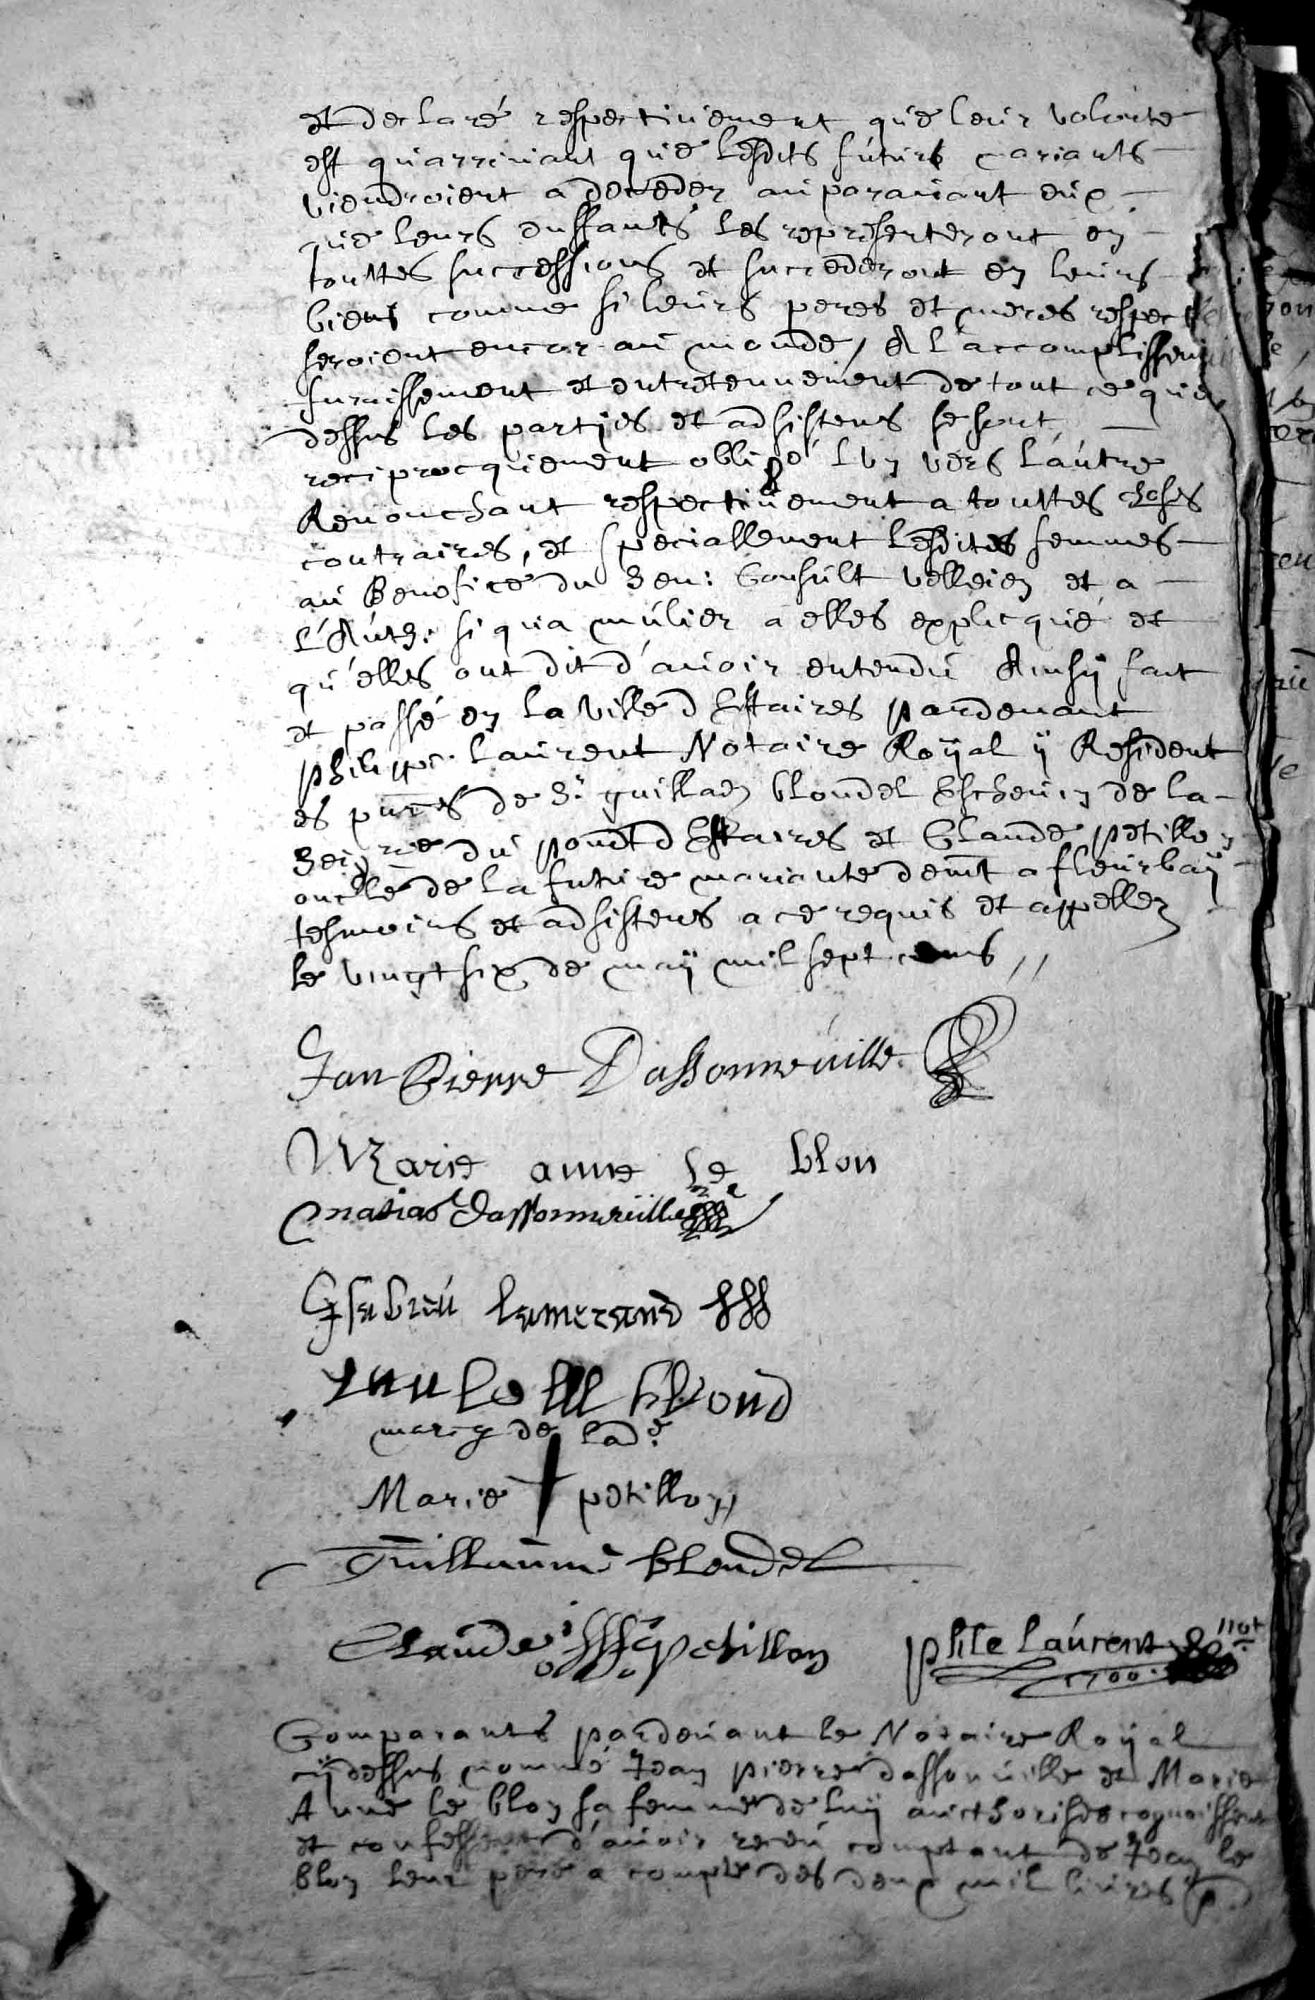 et declaré respectiuement que leur volonte
est qu'arriuant que lesdits futurs mariants
viendroient a deceder auparauant eux
que leurs enffants les representeront en
touttes successions et succederont en leurs
biens comme si leurs peres et meres respect
seroient encor au monde, A l'accomplissem
furnissement et entretennement de tout ce que
dessus les partijes et adsistens se sont
reciprocquement obligé l'un vers l'autre
Renonchant respectiuement a touttes choses
contraires, et speciallement lesdites femmes
au Benefice du Sen: Consult velleien et a
l'Auth: si qua mulier a elles explicqué et
qu'elles ont dit d'auoir entendu Ainsÿ fait
et passé en la ville d'Estaires pardeuant
Philippe Laurent Notaire Roÿal ÿ Resident
es pntes de Sr. guillaē blondel Escheuin de la
Seigrie du pondt d'Estaires et Claude petillon
oncle de la future mariante demt a fleurbaÿ
tesmoins et adsistens a ce requis et appellez
le vingt six de maÿ mil sept cens //
Jan Pierre Dassonneuille
Marie anne le blon
matias dassonneuille
Jan le blond
marcq de lade.
Marie petillon
Guillaume blondel
Claude petillon phle Laurent not
1700.
Comparants pardeuant le Notaire Roÿal
cÿdessus nommé Jean pierre dassonuille et Marie
Anne le blon sa femme de luÿ aucthorisée cognoissent
et confessent d'auoir receu comptant de Jean le
blon leur pere a compte des deux mil liures p.